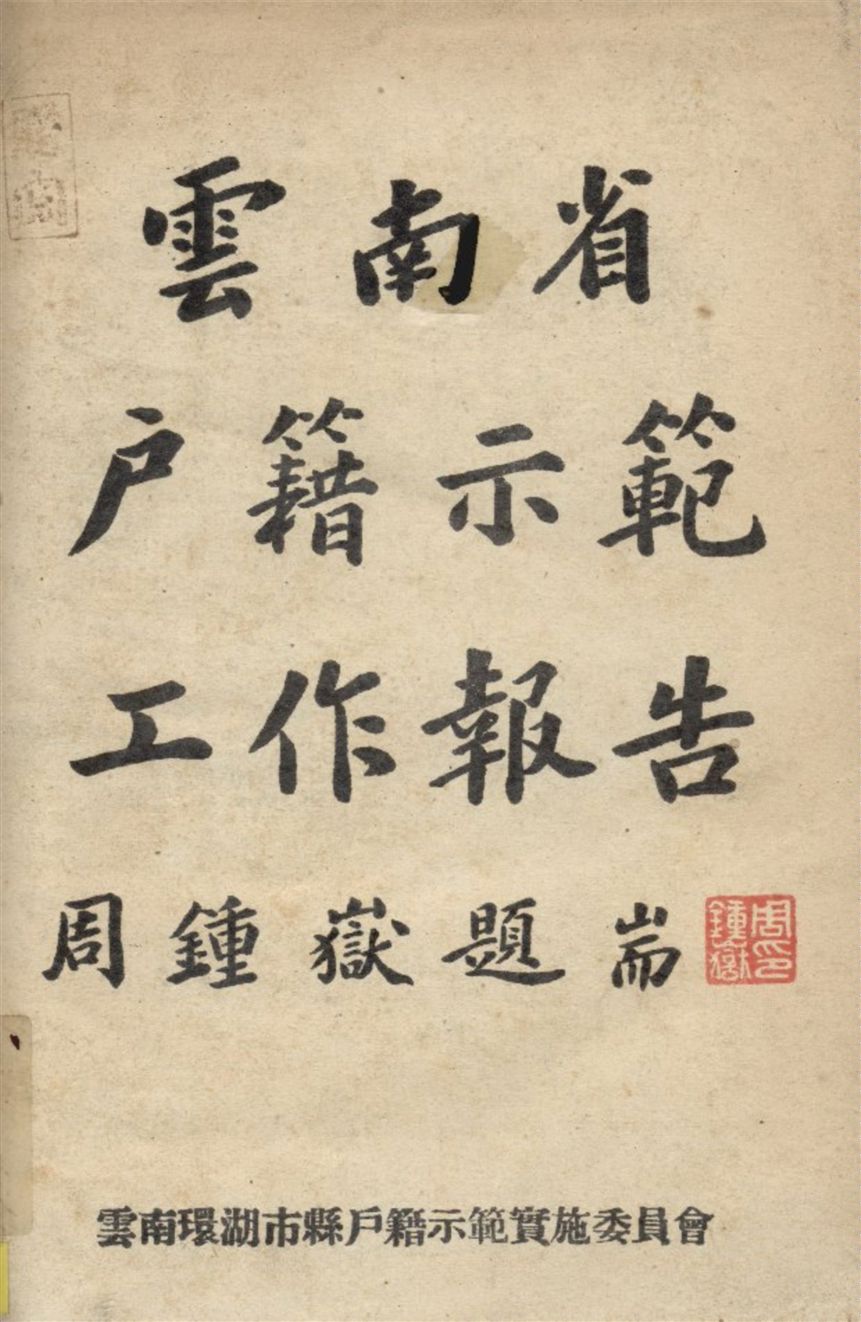 雲南省
户籍示範
工作報告
周鍾嶽題耑
周鍾嶽印
雲南環湖市縣戶籍示範實施委員會